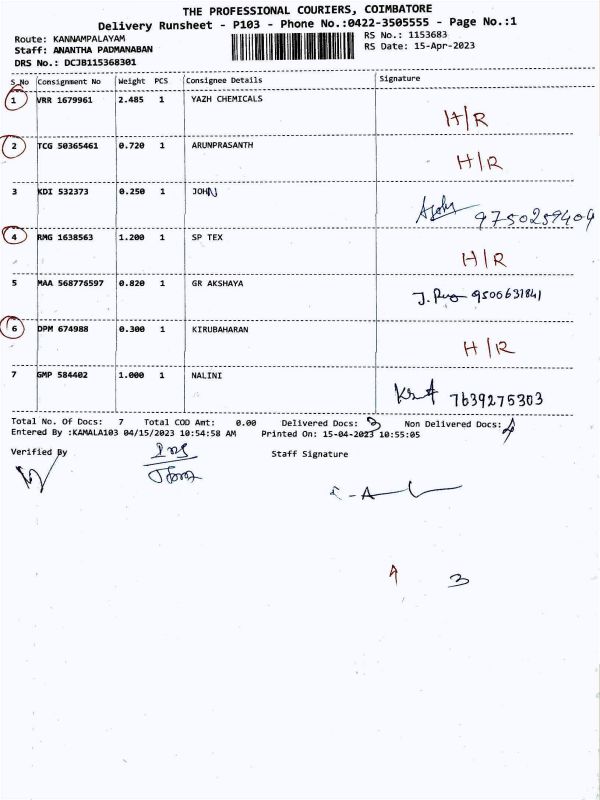 THE PROFESSIONAL COURIERS, COIMBATORE
Delivery Runsheet - P103 - Phone No.:0422-3505555 - Page No.:1
Route: KANNAMPALAYAM RS No.: 1153683
Staff: ANANTHA PADMANABAN RS Date: 15-Apr-2023
DRS No.: DCJB115368301
S_No Consignment No Weight PCS Consignee Details Signature
1 VRR 1679961 2.485 1 YAZH CHEMICALS H/R
2 TCG 50365461 0.720 1 ARUNPRASANTH H/R
3 KDI 532373 0.250 1 JOHN 9750259404
4 RMG 1638563 1.200 1 SP TEX H/R
5 MAA 568776597 0.820 1 GR AKSHAYA 9500631841
6 DPM 674988 0.300 1 KIRUBAHARAN H/R
7 GMP 584402 1.000 1 NALINI 7639275303
Total No. Of Docs: 7 Total COD Amt: 0.00 Delivered Docs: 3 Non Delivered Docs: 4
Entered By :KAMALA103 04/15/2023 10:54:58 AM Printed On: 15-04-2023 10:55:05
Verified By Staff Signature
3